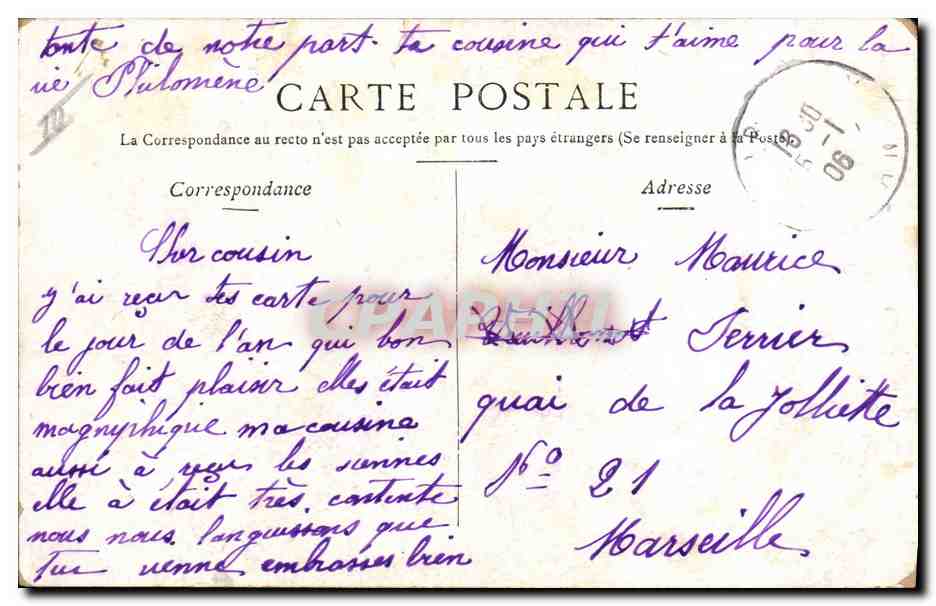 tante de notre part. ta cousine qui t'aime pour la
vie Philomène
CARTE POSTALE
La Correspondance au recto n'est pas acceptée par tous les pays étrangers (Se renseigner à la Poste)
Correspondance
Cher cousin
y'ai reçu tes carte pour
le jour de l'an qui bon
bien fait plaisir elles était
magnyphique ma cousine
aussi à reçu les siennes
elle à était très contente
nous nous languissons que
tu vienne embrasses bien
Adresse
Monsieur Maurice
Serrier
quai de la Jolliette
No 21
Marseille
CPAPHIL
18 30
5 - 1
06
III